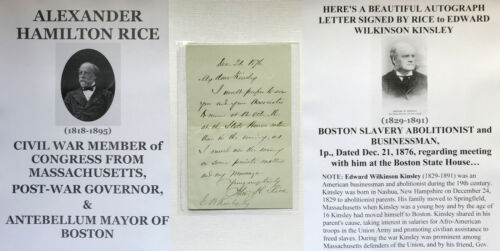 ALEXANDER
HAMILTON RICE
(1818-1895)
CIVIL WAR MEMBER of
CONGRESS FROM
MASSACHUSETTS,
POST-WAR GOVERNOR,
&
ANTEBELLUM MAYOR OF
BOSTON
Dec. 21. 1876
My dear Kinsley
I would prefer to see
you and your Associates
at the State House rather
than in the evening, as
I must use the evening
on some private matters
E W Kinsley
HERE'S A BEAUTIFUL AUTOGRAPH
LETTER SIGNED BY RICE to EDWARD
WILKINSON KINSLEY
(1829-1891)
BOSTON SLAVERY ABOLITIONIST and
BUSINESSMAN,
1p., Dated Dec. 21, 1876, regarding meeting
with him at the Boston State House…
NOTE: Edward Wilkinson Kinsley (1829-1891) was an
American businessman and abolitionist during the 19th century.
Kinsley was born in Nashua, New Hampshire on December 24,
1829 to abolitionist parents. His family moved to Springfield,
Massachusetts when Kinsley was a young boy and by the age of
16 Kinsley had moved himself to Boston. Kinsley shared in his
parent's cause, taking interest in salaries for Afro-American
troops in the Union Army and promoting civilian assistance to
freed slaves. During the war Kinsley was prominent among
Massachusetts defenders of the Union, and by his friend, Gov.